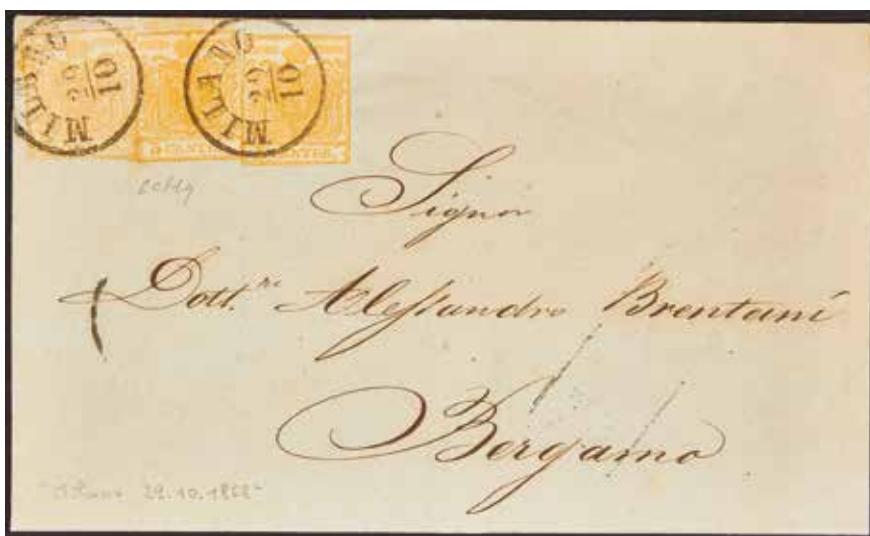 MILANO
29
10
MILANO
29
10
5 CENTES.
CENTES.
Signor
Dott.re Alessandro Brentani
Bergamo
29.10.1858